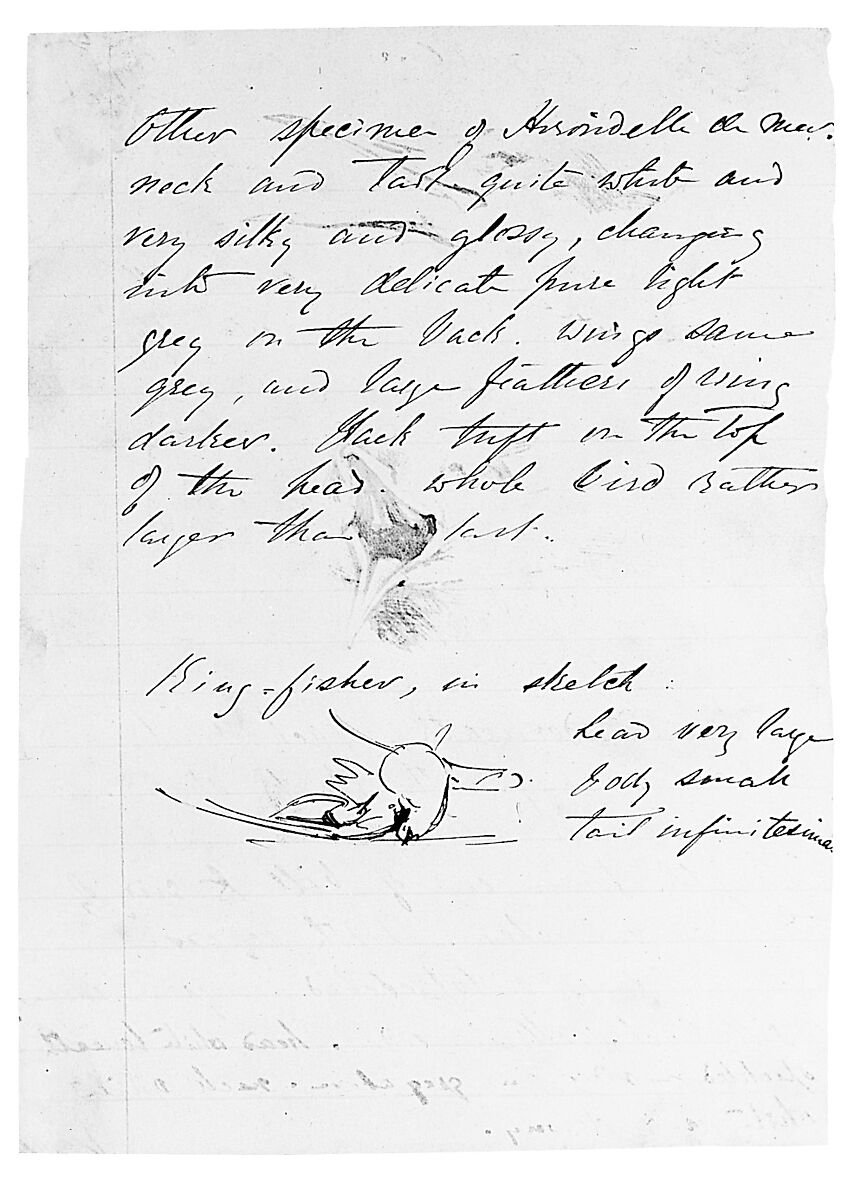 Other specimen of Hirondelle de Mer.
neck and tail quite white and
very silky and glossy, changing
into very delicate pure light
grey on the back. Wings same
grey, and large feathers of wing
darker. Black tuft on the top
of the head. whole bird rather
larger than last.
King-fisher, in sketch :
head very large
body small
tail infinitesima